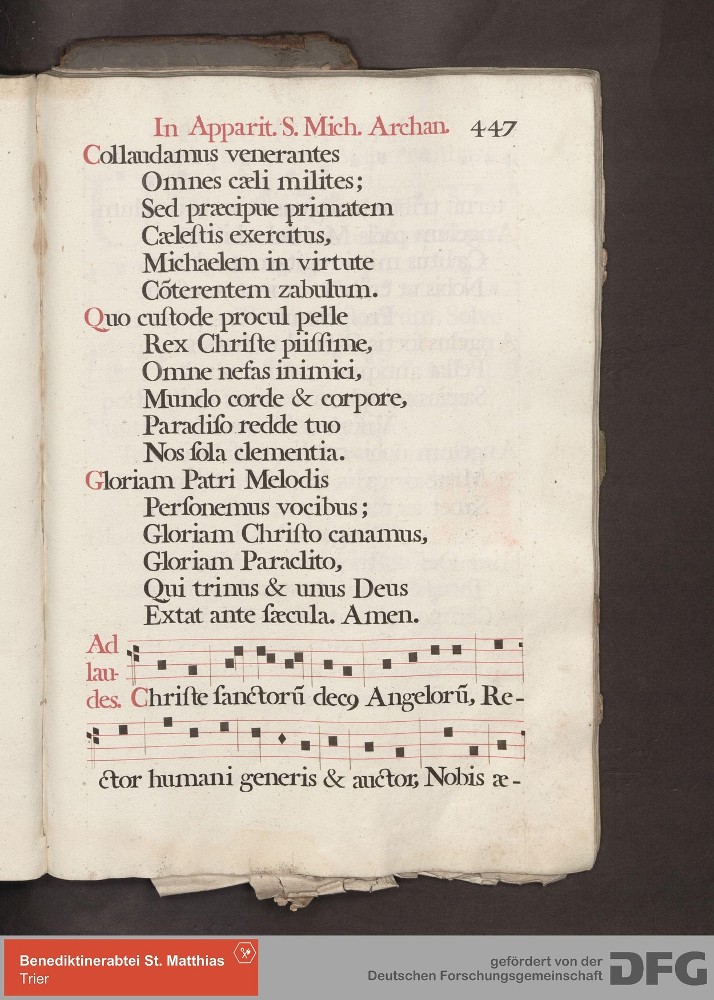 In Apparit. S. Mich. Archan. 447
Collaudamus venerantes
Omnes cæli milites;
Sed præcipue primatem
Cæleſtis exercitus,
Michaelem in virtute
Cõterentem zabulum.
Quo cuſtode procul pelle
Rex Chriſte piiſſime,
Omne nefas inimici,
Mundo corde & corpore,
Paradiſo redde tuo
Nos ſola clementia.
Gloriam Patri Melodis
Perſonemus vocibus;
Gloriam Chriſto canamus,
Gloriam Paraclito,
Qui trinus & unus Deus
Extat ante ſæcula. Amen.
Ad
lau-
des. Chriſte ſanctorũ decꝰ Angelorũ, Re-
ctor humani generis & auctor, Nobis æ-
Benediktinerabtei St. Matthias
Trier
gefördert von der
Deutschen Forschungsgemeinschaft DFG